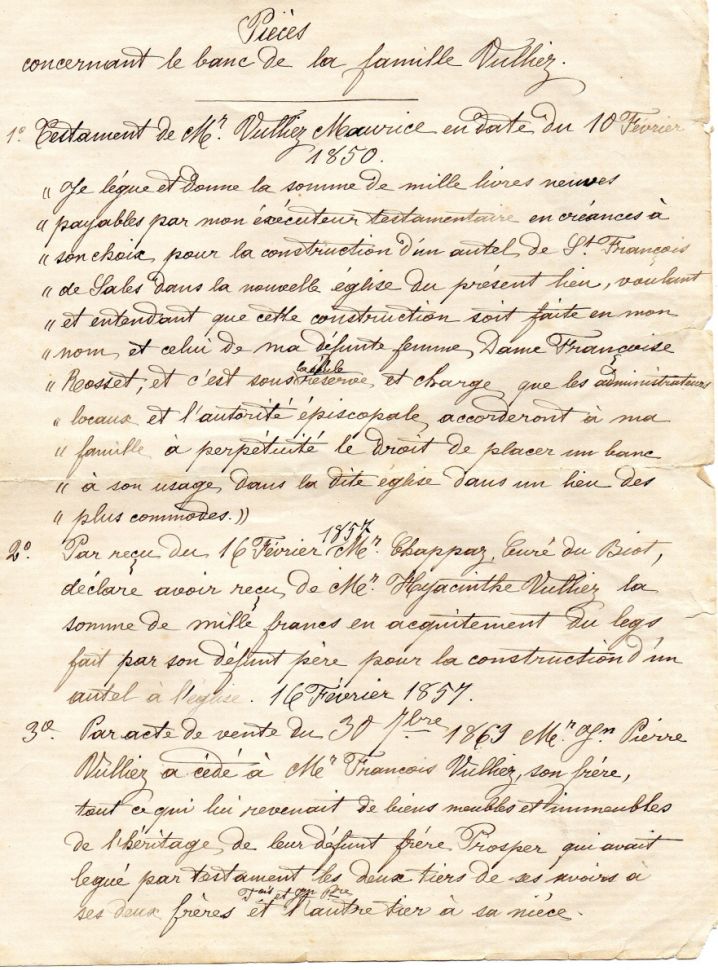 Pièces
concernant le banc de la famille Vulliez.
1º. Testament de Mr. Vulliez Maurice en date du 10 Février
1850.
" Je lègue et donne la somme de mille livres neuves
" payables par mon éxécuteur testamentaire en créances à
" son choix, pour la construction d'un autel de St. François
" de Sales dans la nouvelle église du présent lieu, voulant
" et entendant que cette construction soit faite en mon
" nom et celui de ma défunte femme, Dame Françoise
" Rosset, et c'est sous réserve et charge que les administrateurs
" locaux et l'autorité épiscopale, accorderont à ma
" famille à perpétuité le droit de placer un banc
" à son usage, dans la dite église dans un lieu des
" plus commodes."
2º. Par reçu du 16 Février 1857 Mr. Chappaz, Curé du Biot,
déclare avoir reçu de Mr. Hyacinthe Vulliez la
somme de mille francs en acquitement du legs
fait par son défunt père pour la construction d'un
autel à l'église. 16 Février 1857.
3º. Par acte de vente du 30 7bre 1869 Mr. Jn Pierre
Vulliez a cédé à Mr François Vulliez, son frère,
tout ce qui lui revenait de biens meubles et immeubles
de l'héritage de leur défunt frère Prosper qui avait
legué par testament les deux tiers de ses avoirs à
ses deux frères et Jn Pre et l'autre tier à sa nièce.